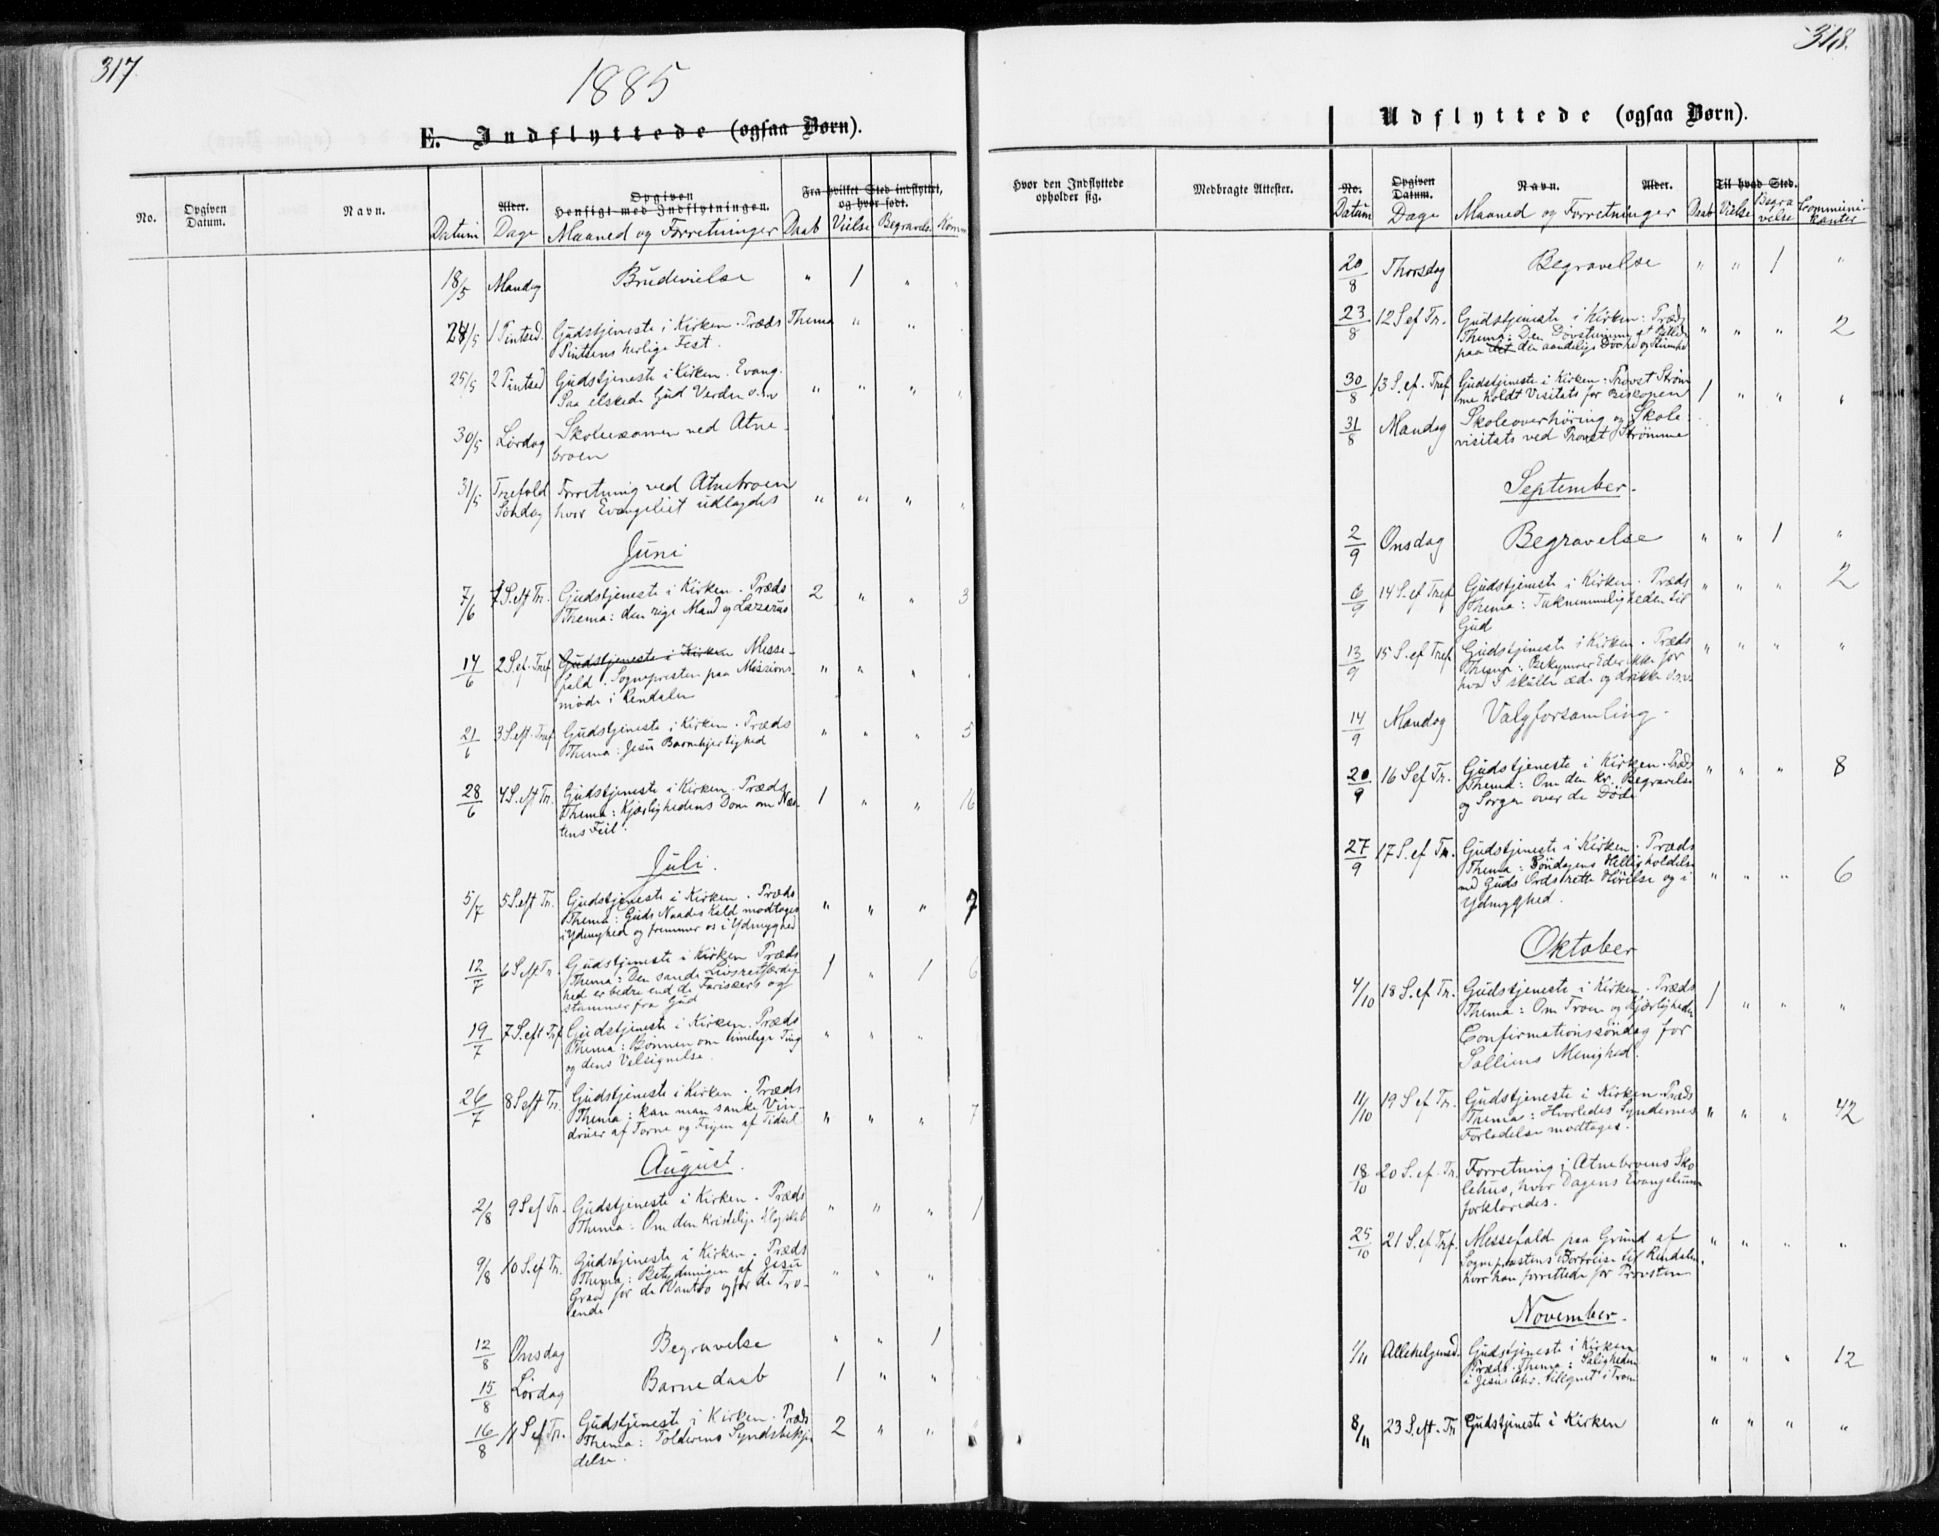 317.
1885
E. Indflyttede (ogsaa Børn).
No.
Opgiven Datum.
Navn.
Alder.
Opgiven Hensigt med Indflytningen.
Fra hvilket Sted indflyttet, og hvor født.
Datum Dage Maaned og Forretninger Daab Vielse Begravelse Komm
18/5 Mandag Brudevielse " 1 " "
24/5 1 Pintsed. Gudstjeneste i Kirken. Præds Thema " "
Pintsens herlige Fest.
25/5 2 Pintsed Gudstjeneste i Kirken. Evang.
Saa elskede Gud Verden o.s.v " " " "
30/5 Lørdag Skoleexamen ved Atne-
broen
31/5 Trefold Forretning ved Atnebroen
Søndag hvor Evangeliet udlagdes " " " "
Juni
7/6 1 S. eft Tr. Gudstjeneste i Kirken. Præds 2 " " 3
Thema: den rige Mand og Lazarus
14/6 2 S. ef. Tref Gudstjeneste i Kirken Messe-
fald. Sognepresten paa Missions- " " " "
møde i Rendalen
21/6 3 S. eft. Tref Gudstjeneste i Kirken. Præds " " " 5
Thema: Jesu Barmhjertighed
28/6 4 S. eft Tr. Gudstjeneste i Kirken. Præds 1 " " 16
Thema: Kjærlighedens Dom om Næs-
tens Feil.
Juli.
5/7 5 S. eft Tr. Gudstjeneste i Kirken. Præds
Thema: Guds Naades Kald modtages " " " 7
i Ydmyghed og fremmer os i Ydmyghed
12/7 6 S. eft Tr. Gudstjeneste i Kirken Præds
Thema: Den sande Livsretfærdig- 1 " 1 6
hed er bedre end de Fariseers og
stammer fra Gud
19/7 7 S. eft Tref Gudstjeneste i Kirken. Præds
Thema: Bønnen om timelige Ting " " "
og dens Velsignelse.
26/7 8 S. eft Tr. Gudstjeneste i Kirken. Præds
Thema: kan man sanke Vin- " " " 7
druer af Torne og Figen af Tidsel
August.
2/8 9 S. ef Tr. Gudstjeneste i Kirken. Præds " " " 1
Thema: Om den kristelige Klogskab
9/8 10 S. ef Tr. Gudstjeneste i Kirken. Præds
Thema: Betydningen af Jesu " " "
Graad for de Vantro og for de Tro-
ende
12/8 Onsdag Begravelse " " 1
15/8 Lørdag Barnedaab 1 " "
16/8 11 S. ef Tr. Gudstjeneste i Kirken. Præds
Thema: Tolderens Syndsbekjen- 2 " " "
delse.
318.
Udflyttede (ogsaa Børn).
Hvor den Indflyttede opholder sig.
Medbragte Attester.
No.
Opgiven Datum.
Navn.
Alder.
Til hvad Sted.
Datum Dage Maaned og Forretninger Daab Vielse Begravelse Communikanter
20/8 Thorsdag Begravelse " " 1 "
23/8 12 S. ef Tr. Gudstjeneste i Kirken: Præds
Thema: Den Døvstumme et Billede " " " 2
paa det den aandelige Døvhed og Stumhed
30/8 13 S. ef. Tref Gudstjeneste i Kirken: Provst Strøm-
me holdt Visitats for Biskopen 1 " " "
31/8 Mandag Skoleoverhøring og Skole-
visitats ved Provst Strømme
September.
2/9 Onsdag Begravelse " " 1 "
6/9 14 S. ef Tref Gudstjeneste i Kirken. Præds " " " 2
Thema: Taknemmeligheden til
Gud
13/9 15 S. ef Tref Gudstjeneste i Kirken. Præds " " " "
Thema: Bekymrer Eder ikke for
hvad I skulle æde og drikke o.s.v.
14/9 Mandag Valgforsamling.
20/9 16 S. ef Tr. Gudstjeneste i Kirken. Præds " " " 8
Thema: Om den kr. Begravelse
og Sorgen over de Døde
27/9 17 S. ef Tr. Gudstjeneste i Kirken. Præds
Thema: Søndagens Helligholdelse
ved Guds Ords rette Hørelse og i " " " 6
Ydmyghed.
Oktober
4/10 18 S. ef Tr. Gudstjeneste i Kirken. Præds 1 " " "
Thema: Om Troen og Kjærligheden
Confirmationssøndag for
Solliens Menighed.
11/10 19 S. ef Tr. Gudstjeneste i Kirken. Præds
Thema: Hvorledes Syndernes " " " 42
Forladelse modtages.
18/10 20 S. ef. Tr. Forretning i Atnebroens Sko-
lehus, hvor Dagens Evangelium
forklaredes.
25/10 21 S. ef Tref. Messefald paa Grund af " " " "
Sogneprestens Bortreise til Rendalen,
hvor han forrettede for Provsten
November.
1/11 Allehelgensd. Gudstjeneste i Kirken
Præds. Thema: Saligheden " " " 12
i Jesus Chr. tilegnet i Troen
8/11 23 S. eft. Tr Gudstjeneste i Kirken " " " "